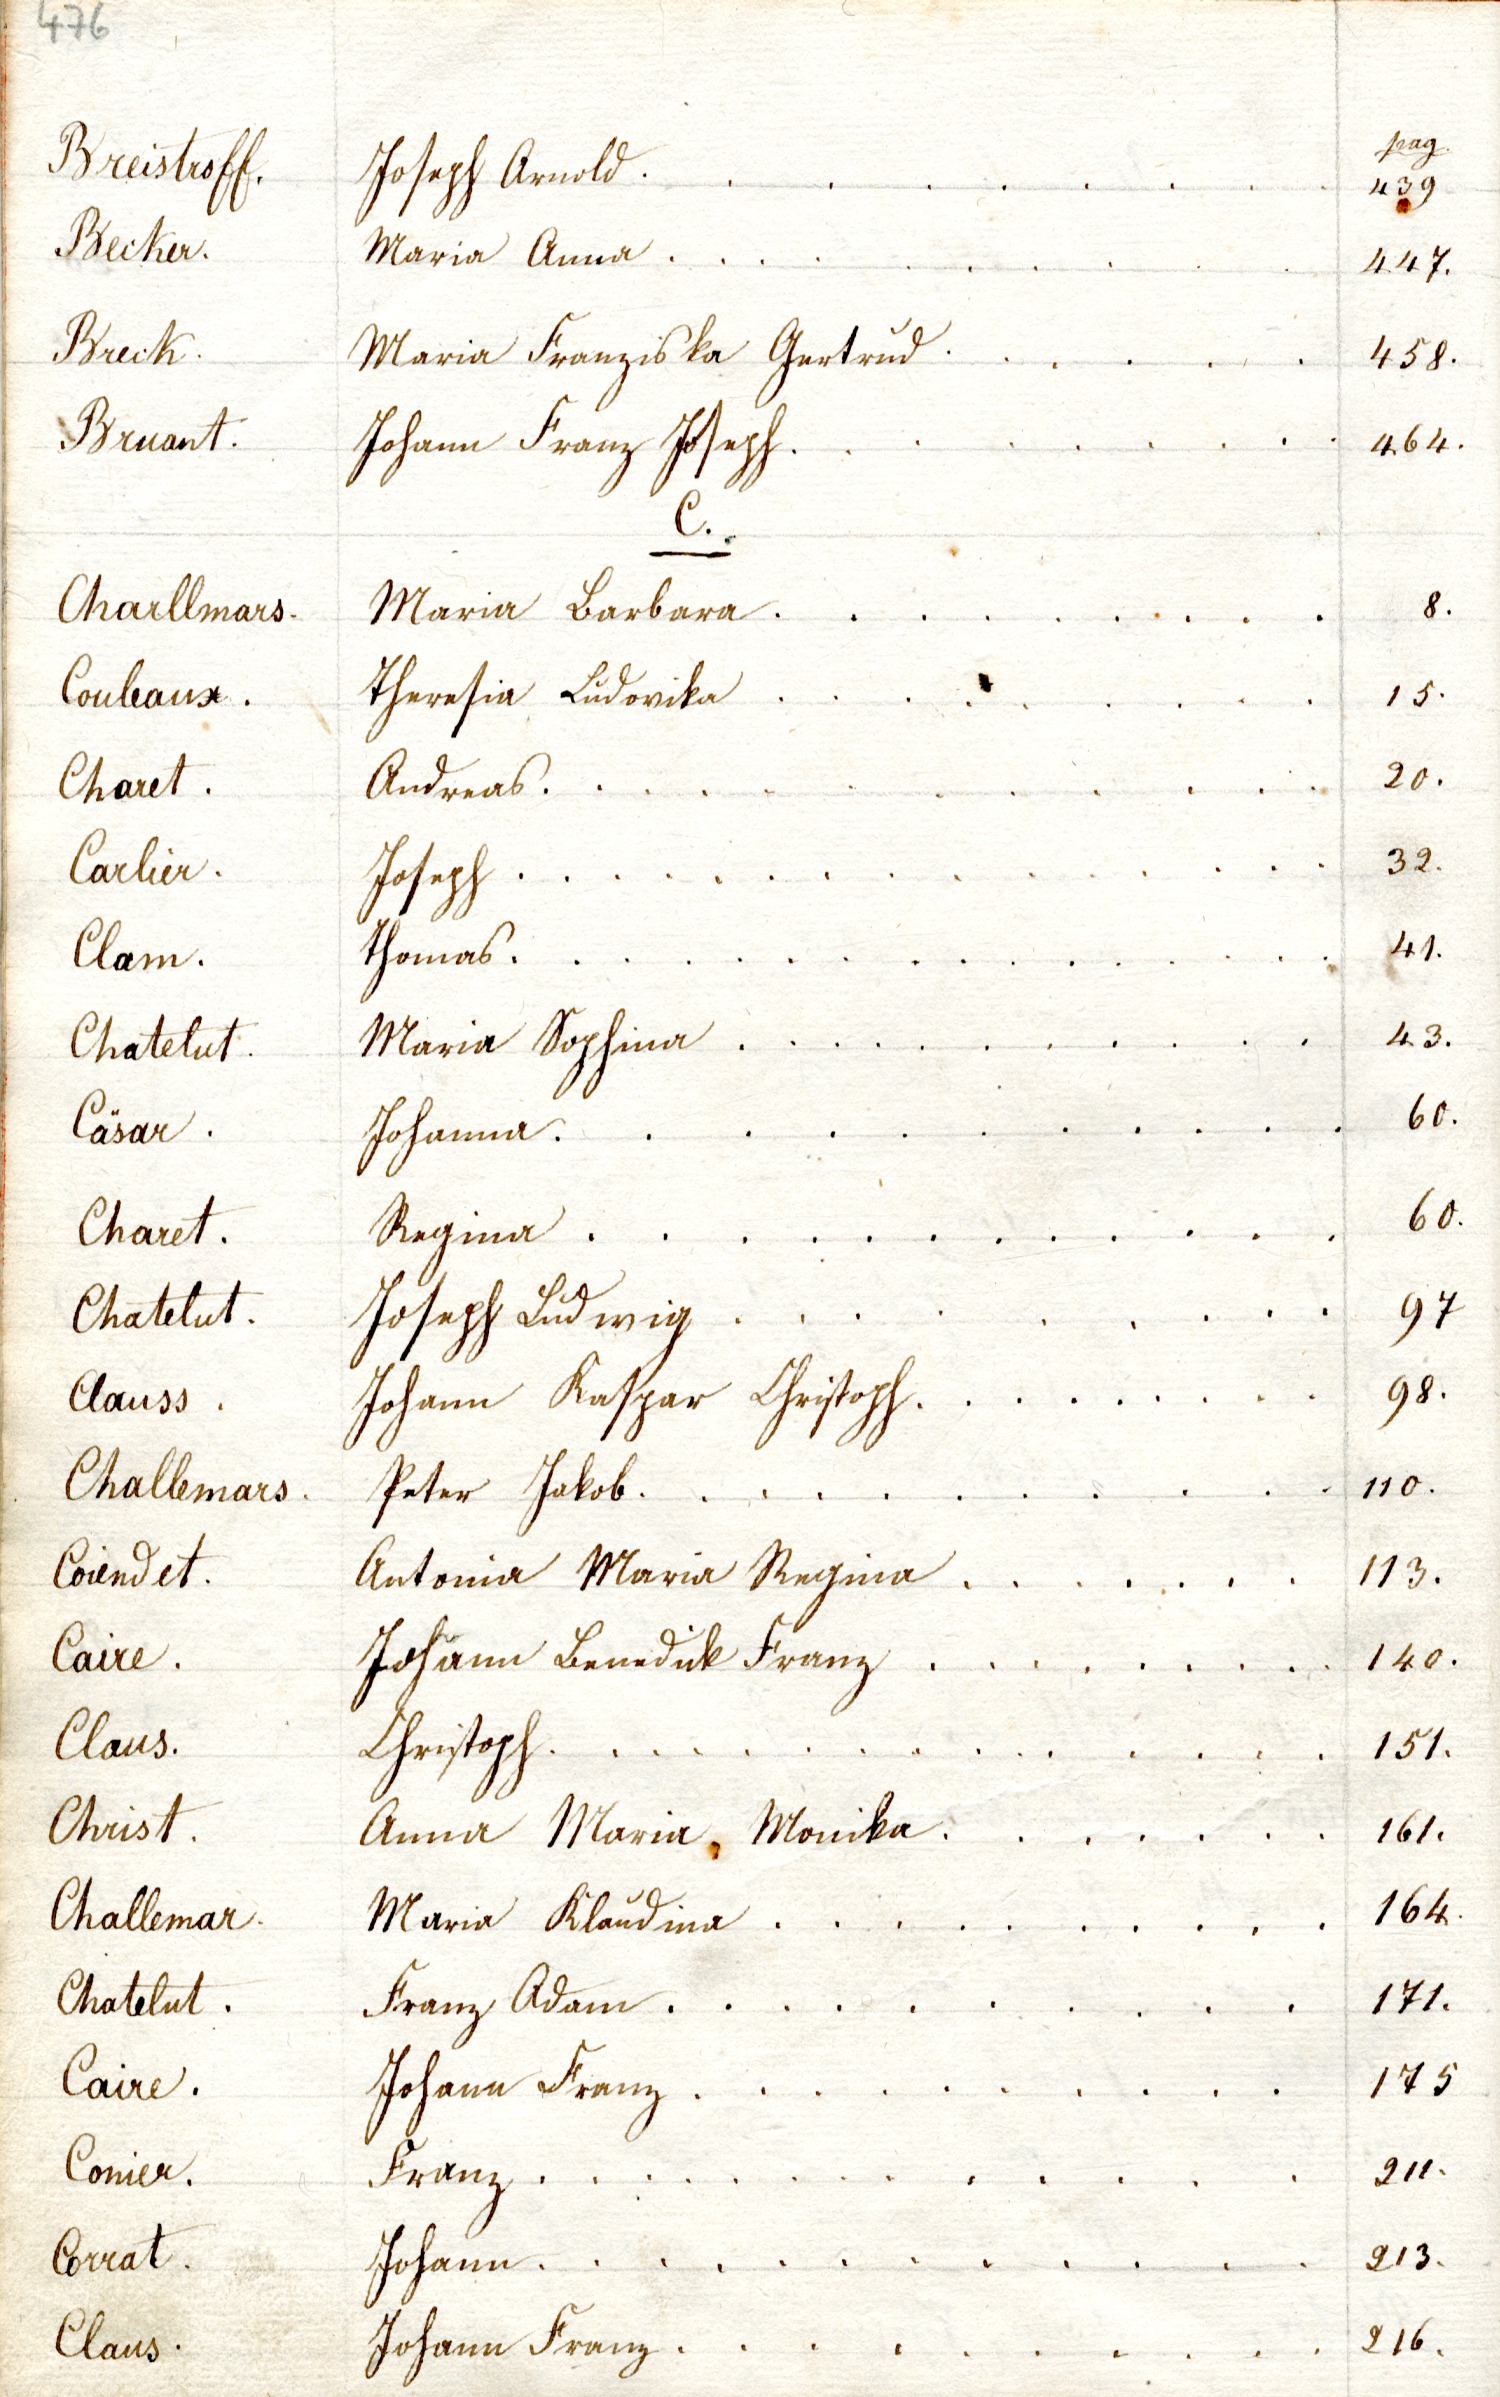 476
pag.
Breistroff. Joseph Arnold. 439
Becker. Maria Anna. 447.
Breck. Maria Franziska Gertrud. 458.
Bruant. Johann Franz Joseph. 464.
C.
Charllmars. Maria Barbara. 8.
Couleaux. Theresia Ludovika 15.
Charet. Andreas. 20.
Carlier. Joseph. 32.
Clam. Thomas. 41.
Chatelut. Maria Sophina 43.
Cäsar. Johanna. 60.
Charet. Regina. 60.
Chatelut. Joseph Ludwig. 97
Clauss. Johann Kaspar Christoph. 98.
Challemars. Peter Jakob. 110.
Coiendet. Antonia Maria Regina. 113.
Caire. Johann Benedick Franz. 140.
Claus. Christoph. 151.
Christ. Anna Maria Monika. 161.
Challemar. Maria Klaudina. 164.
Chatelut. Franz Adam. 171.
Caire. Johann Franz. 175
Conier. Franz. 211.
Corrat. Johann. 213.
Claus. Johann Franz. 216.